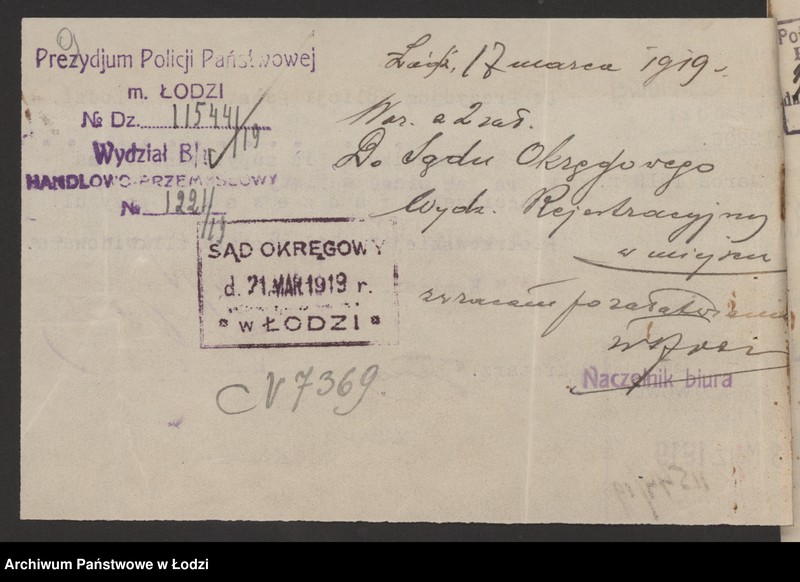 9
Prezydjum Policji Państwowej
m. ŁODZI
№ Dz. 11544/19
Wydział B
HANDLOWO-PRZEMYSŁOWY
№ 1221/19
SĄD OKRĘGOWY
d. 21. MAR 1919 r.
* w ŁODZI *
N 7369.
Łódź, 17 marca 1919.
War. a 2 zał.
Do Sądu Okręgowego
Wydz. Rejestracyjny
w miejscu
zwracam po załatwieniu
Naczelnik biura
Archiwum Państwowe w Łodzi